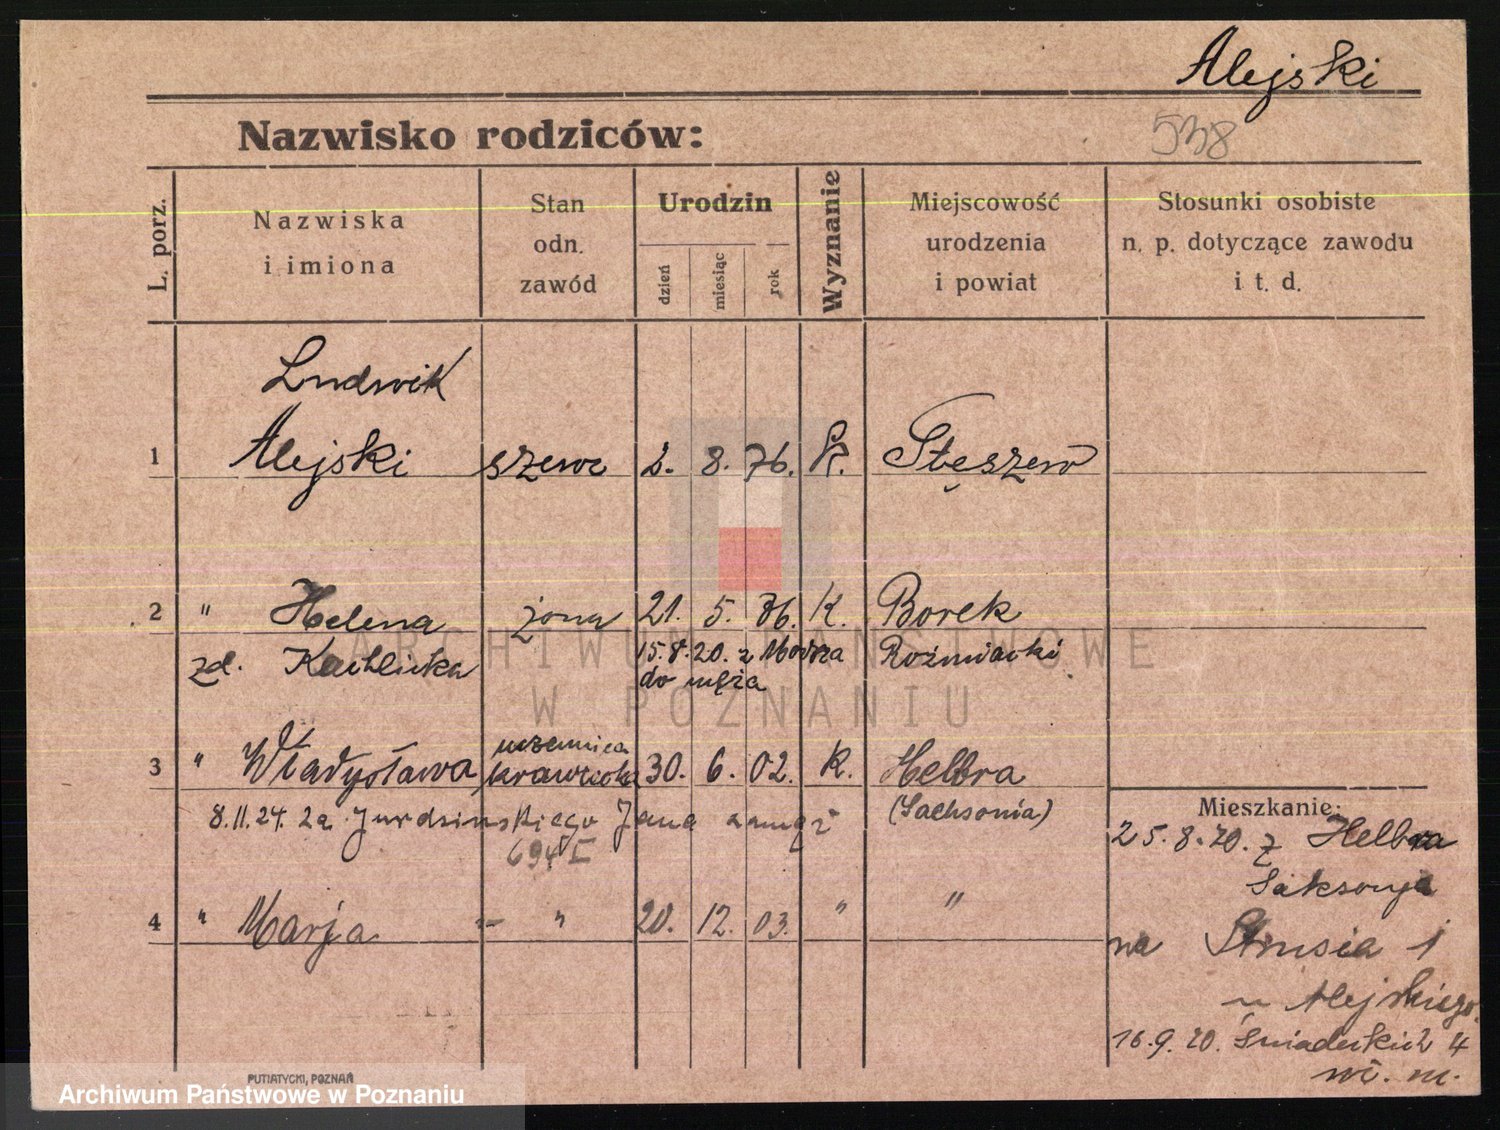 Alejski
538
Nazwisko rodziców:
L. porz.
Nazwiska
i imiona
Stan
odn.
zawód
Urodzin
dzień
miesiąc
rok
Wyznanie
Miejscowość
urodzenia
i powiat
Stosunki osobiste
n. p. dotyczące zawodu
i t. d.
Ludwik
1 Alejski szewc 2. 8. 76. K. Stęszew
2 " Helena żona 21. 5. 76. K. Borek
zd. 15.8.20. z do męża
3 " Władysława uczennica krawiecka 30. 6. 02. K. Helbra
8.11.24. za Jurdzińskiego Jana zamąż (Sachsonia)
694 I
4 " Marja - " 20. 12. 03. " "
Mieszkanie:
25.8.20. z Helbra
Saksonja
na Strusia 1
u Alejskiego.
16.9.20. Śniadeckich 4
w. m.
ARCHIWUM PAŃSTWOWE
W POZNANIU
PUTIATYCKI, POZNAŃ
Archiwum Państwowe w Poznaniu